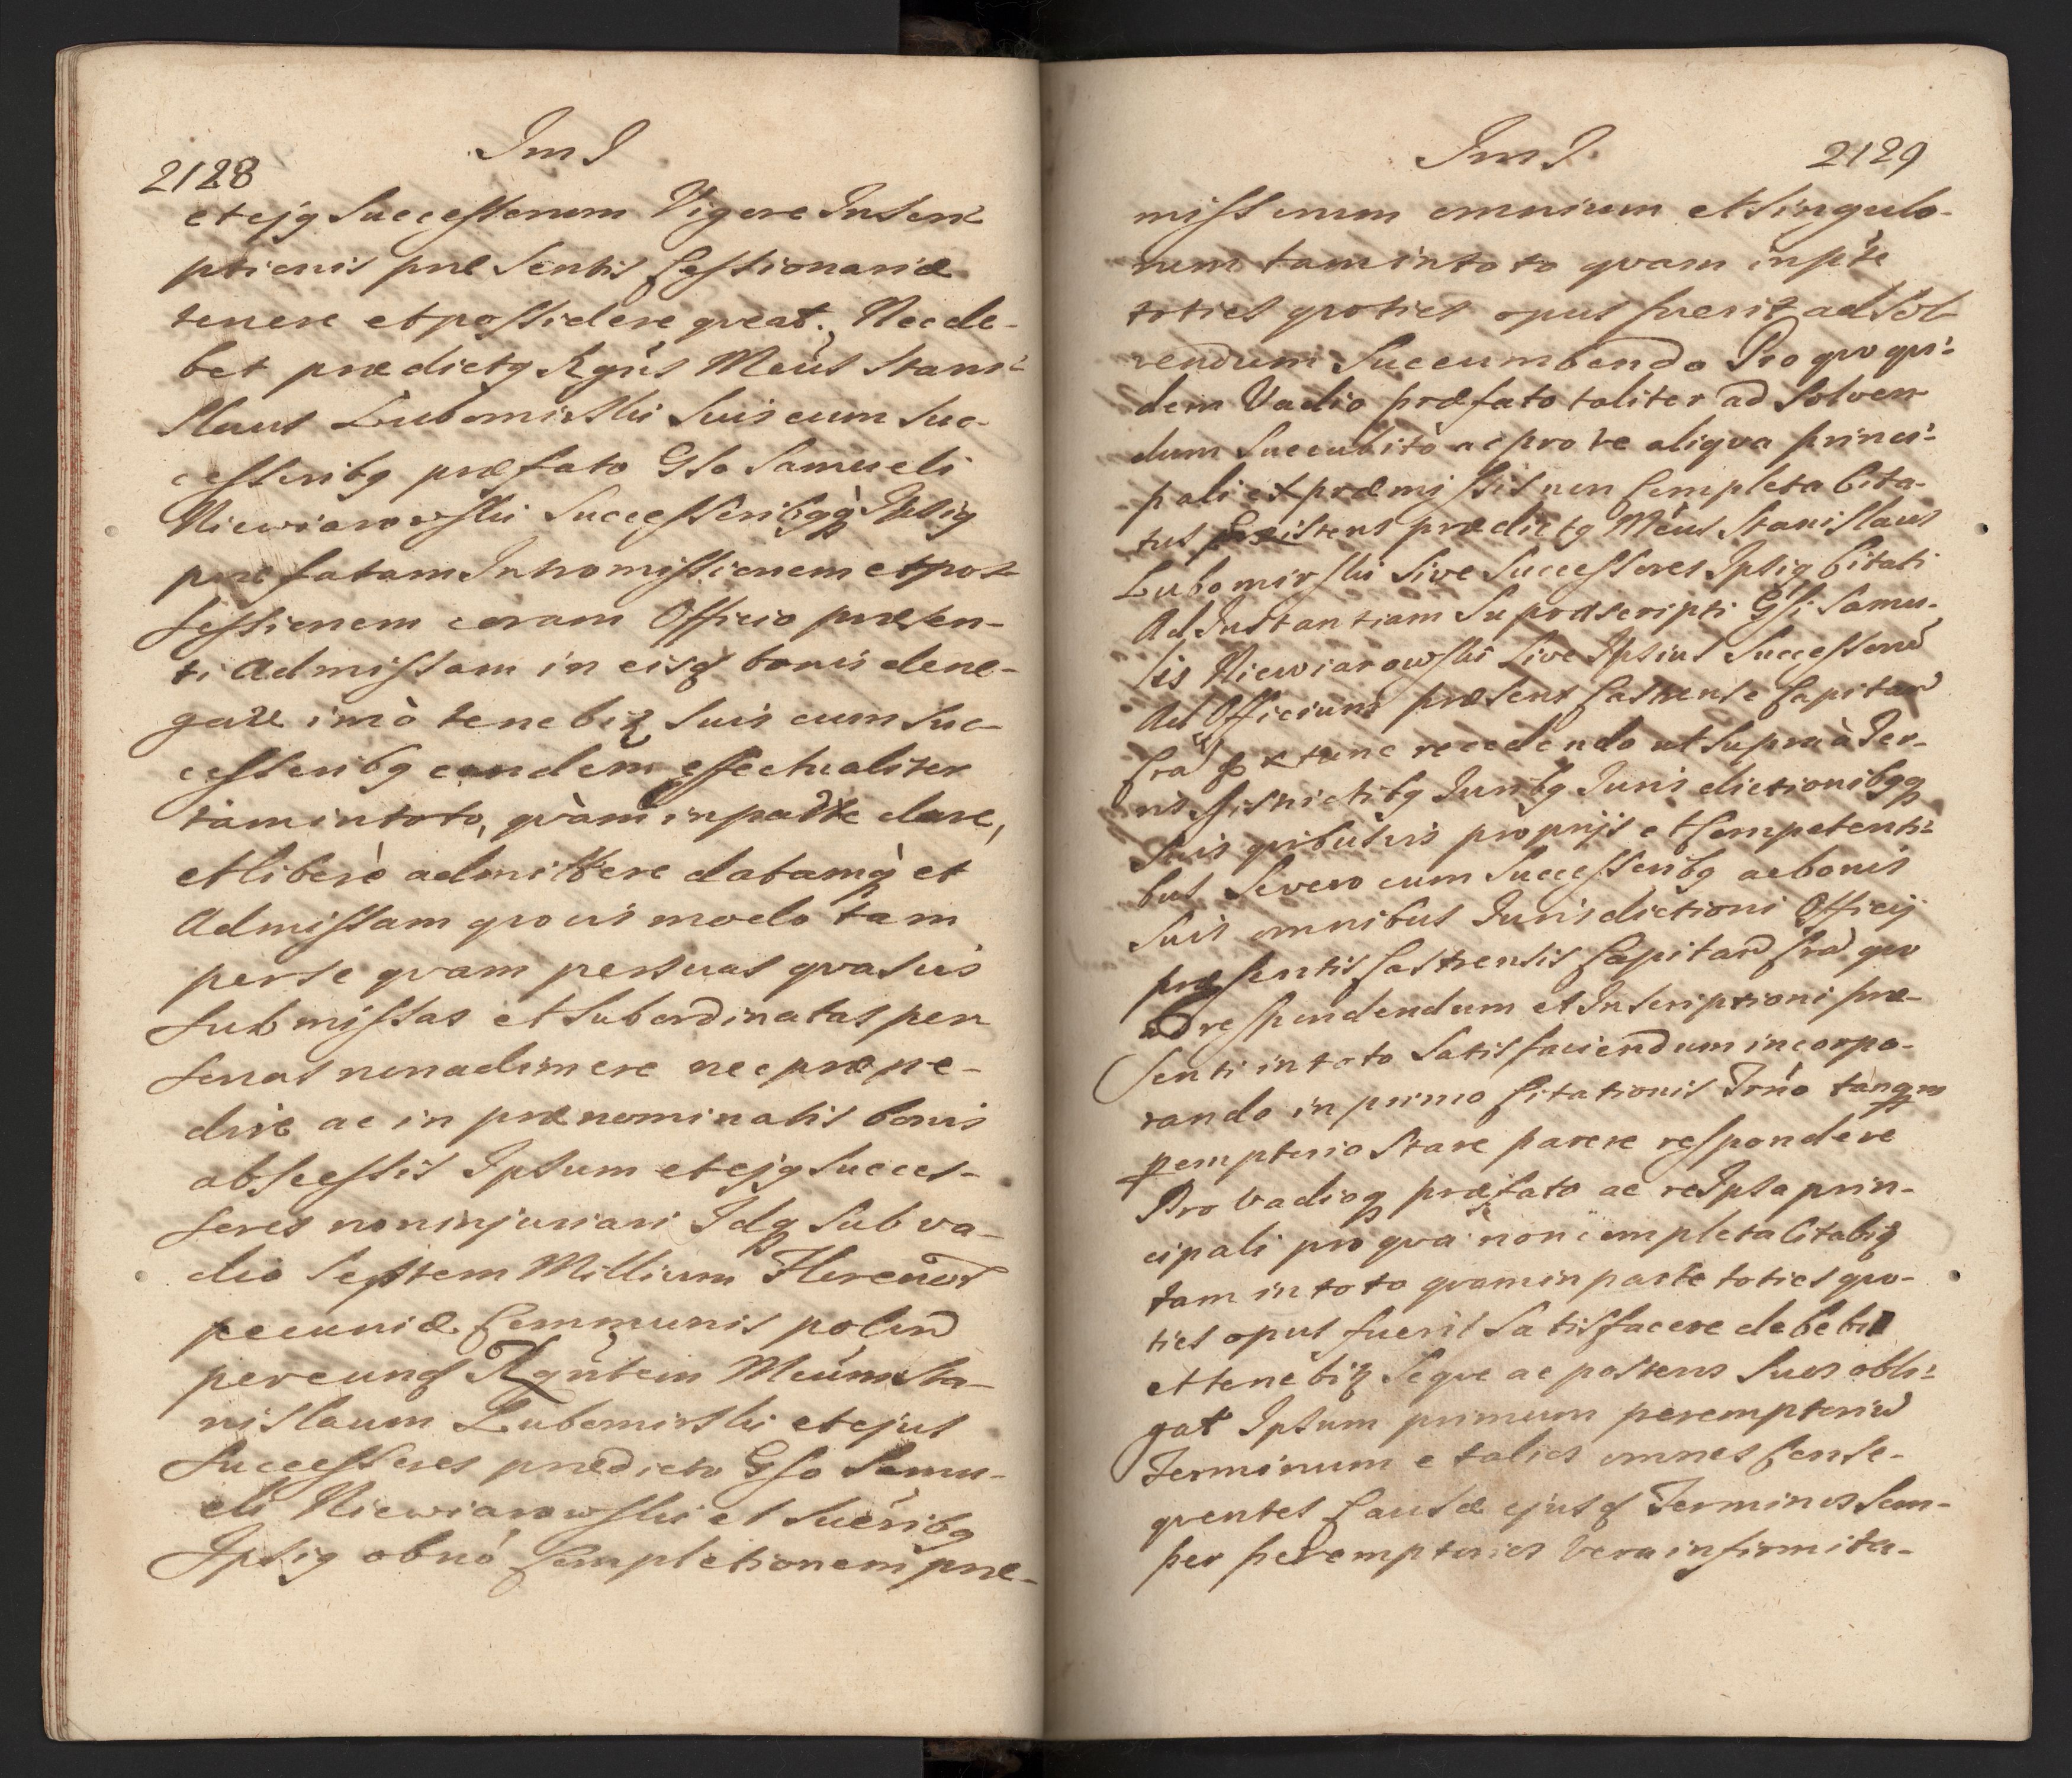 2128
Im I
et ejq Successorum Vigore Inscri-
ptionis præsentis Cessionariæ
tenere et possidere qveat. Nec de-
bet prædictq Rgñs Mẽus Stani-
slaus Lubomirski suis cum suc-
cessoribq præfato Gſo Samueli
Niewiarowski Successoribqq Ipsiq
præfatam Intromissionem et pos-
sessionem coram Officio præsen-
ti Admissam in eisd bonis dene-
gare imò tenebit suis cum suc-
cessoribq eandem effectualiter
tàm in toto, qvàm in parte dare,
et liberè admittere datamq et
Admissam qvovis modo tam
per se qvam per suas qvasvis
submissas et subordinatas per
sonas non adimere nec præpe-
dire ac in prænominatis bonis
abscessis Ipsum et ejq Succes-
sores non injuriari Idq sub va-
dio Septem Millium Florenor
pecuniæ Communis polon
per eund Rgñtem Mẽum Sta-
nislaum Lubomirski et ejus
Successores prædicto Gſo Samu-
eli Niewiarowski et Sucribq
Ipsiq ob nõ Completionem præ-
Im I
2129
missorum omnium et singulo-
rum tam in toto qvam in pṫe
toties qvoties opus fuerit ad Sol-
vendum Succumbendo Pro qvo qvi-
dem Vadio præfato taliter ad Solven
dum Succubitò ac pro re aliqva princi-
pali ex præmissis non Completa Cita-
tus Existens prædictq Mẽus Stanislaus
Lubomirski Sive Successores Ipsiq Citati
Ad Instantiam Supræscripti Gſi Samu-
lis Niewiarowski Sive Ipsius Successorũ
Ad Officium præsens Castrense Capitan
Cra Ex tunc recedendo ut supra à Ter-
ris Districtibq Juribq Jurisdictionibqq
Suis qvibusvis proprijs et Competenti-
bus Se vero cum Successoribq ac bonis
Suis omnibus Jurisdictioni Officij
præsentis Castrensis Capitan Cra qvo
ad respondendum et Inscriptioni præ-
senti in toto Satisfaciendum incorpo-
rando in primo Citationis Trño tanqvam
pempterio Stare parere respondere
Pro Vadioq præfato ac re Ipsa prin-
cipali pro qva non completa Citabit
tam in toto qvam in parte toties qvo-
ties opus fuerit Satisfacere debebit
et tenebit Seqve ac posteros Suos obli-
gat Ipsum primum perempteriũ
Terminum et alios omnes Conse-
qventes Causæ ejusd Terminos Sem-
per peremptorios Vera infirmita-